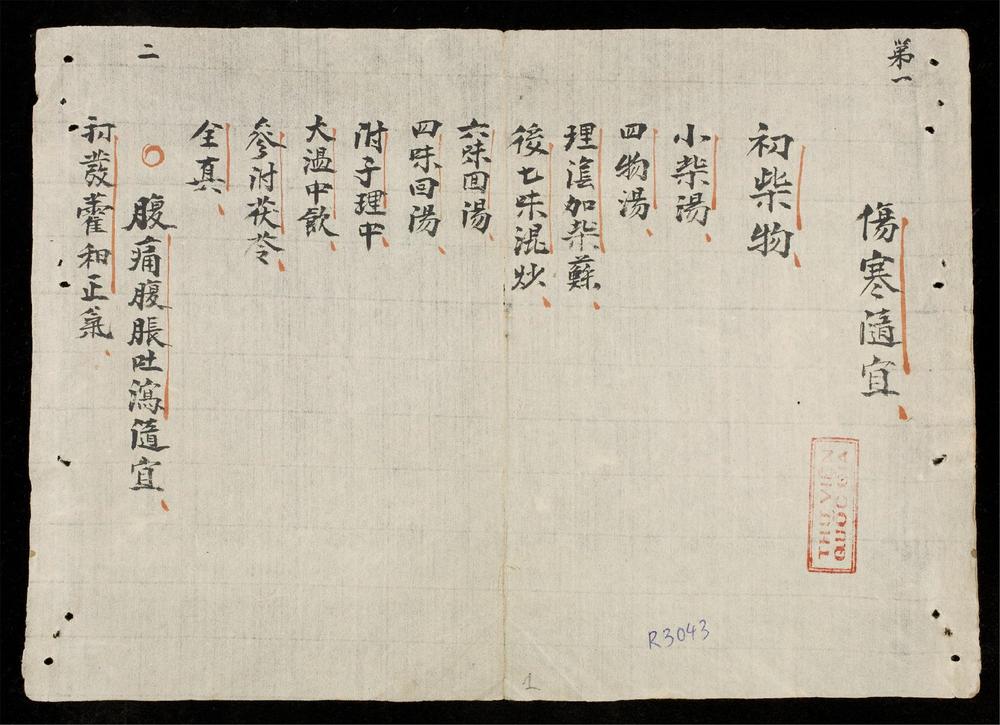 第一
傷寒隨宜
初柴物
小柴湯
四物湯
理陰加柴蘇
後七味混炒
六味回湯
四味回湯
附子理中
大温中飲
參附茯苓
全真
二
腹痛腹脹吐瀉隨宜
初發藿和正氣
THƯ VIỆN
QUỐC GIA
R3043
1